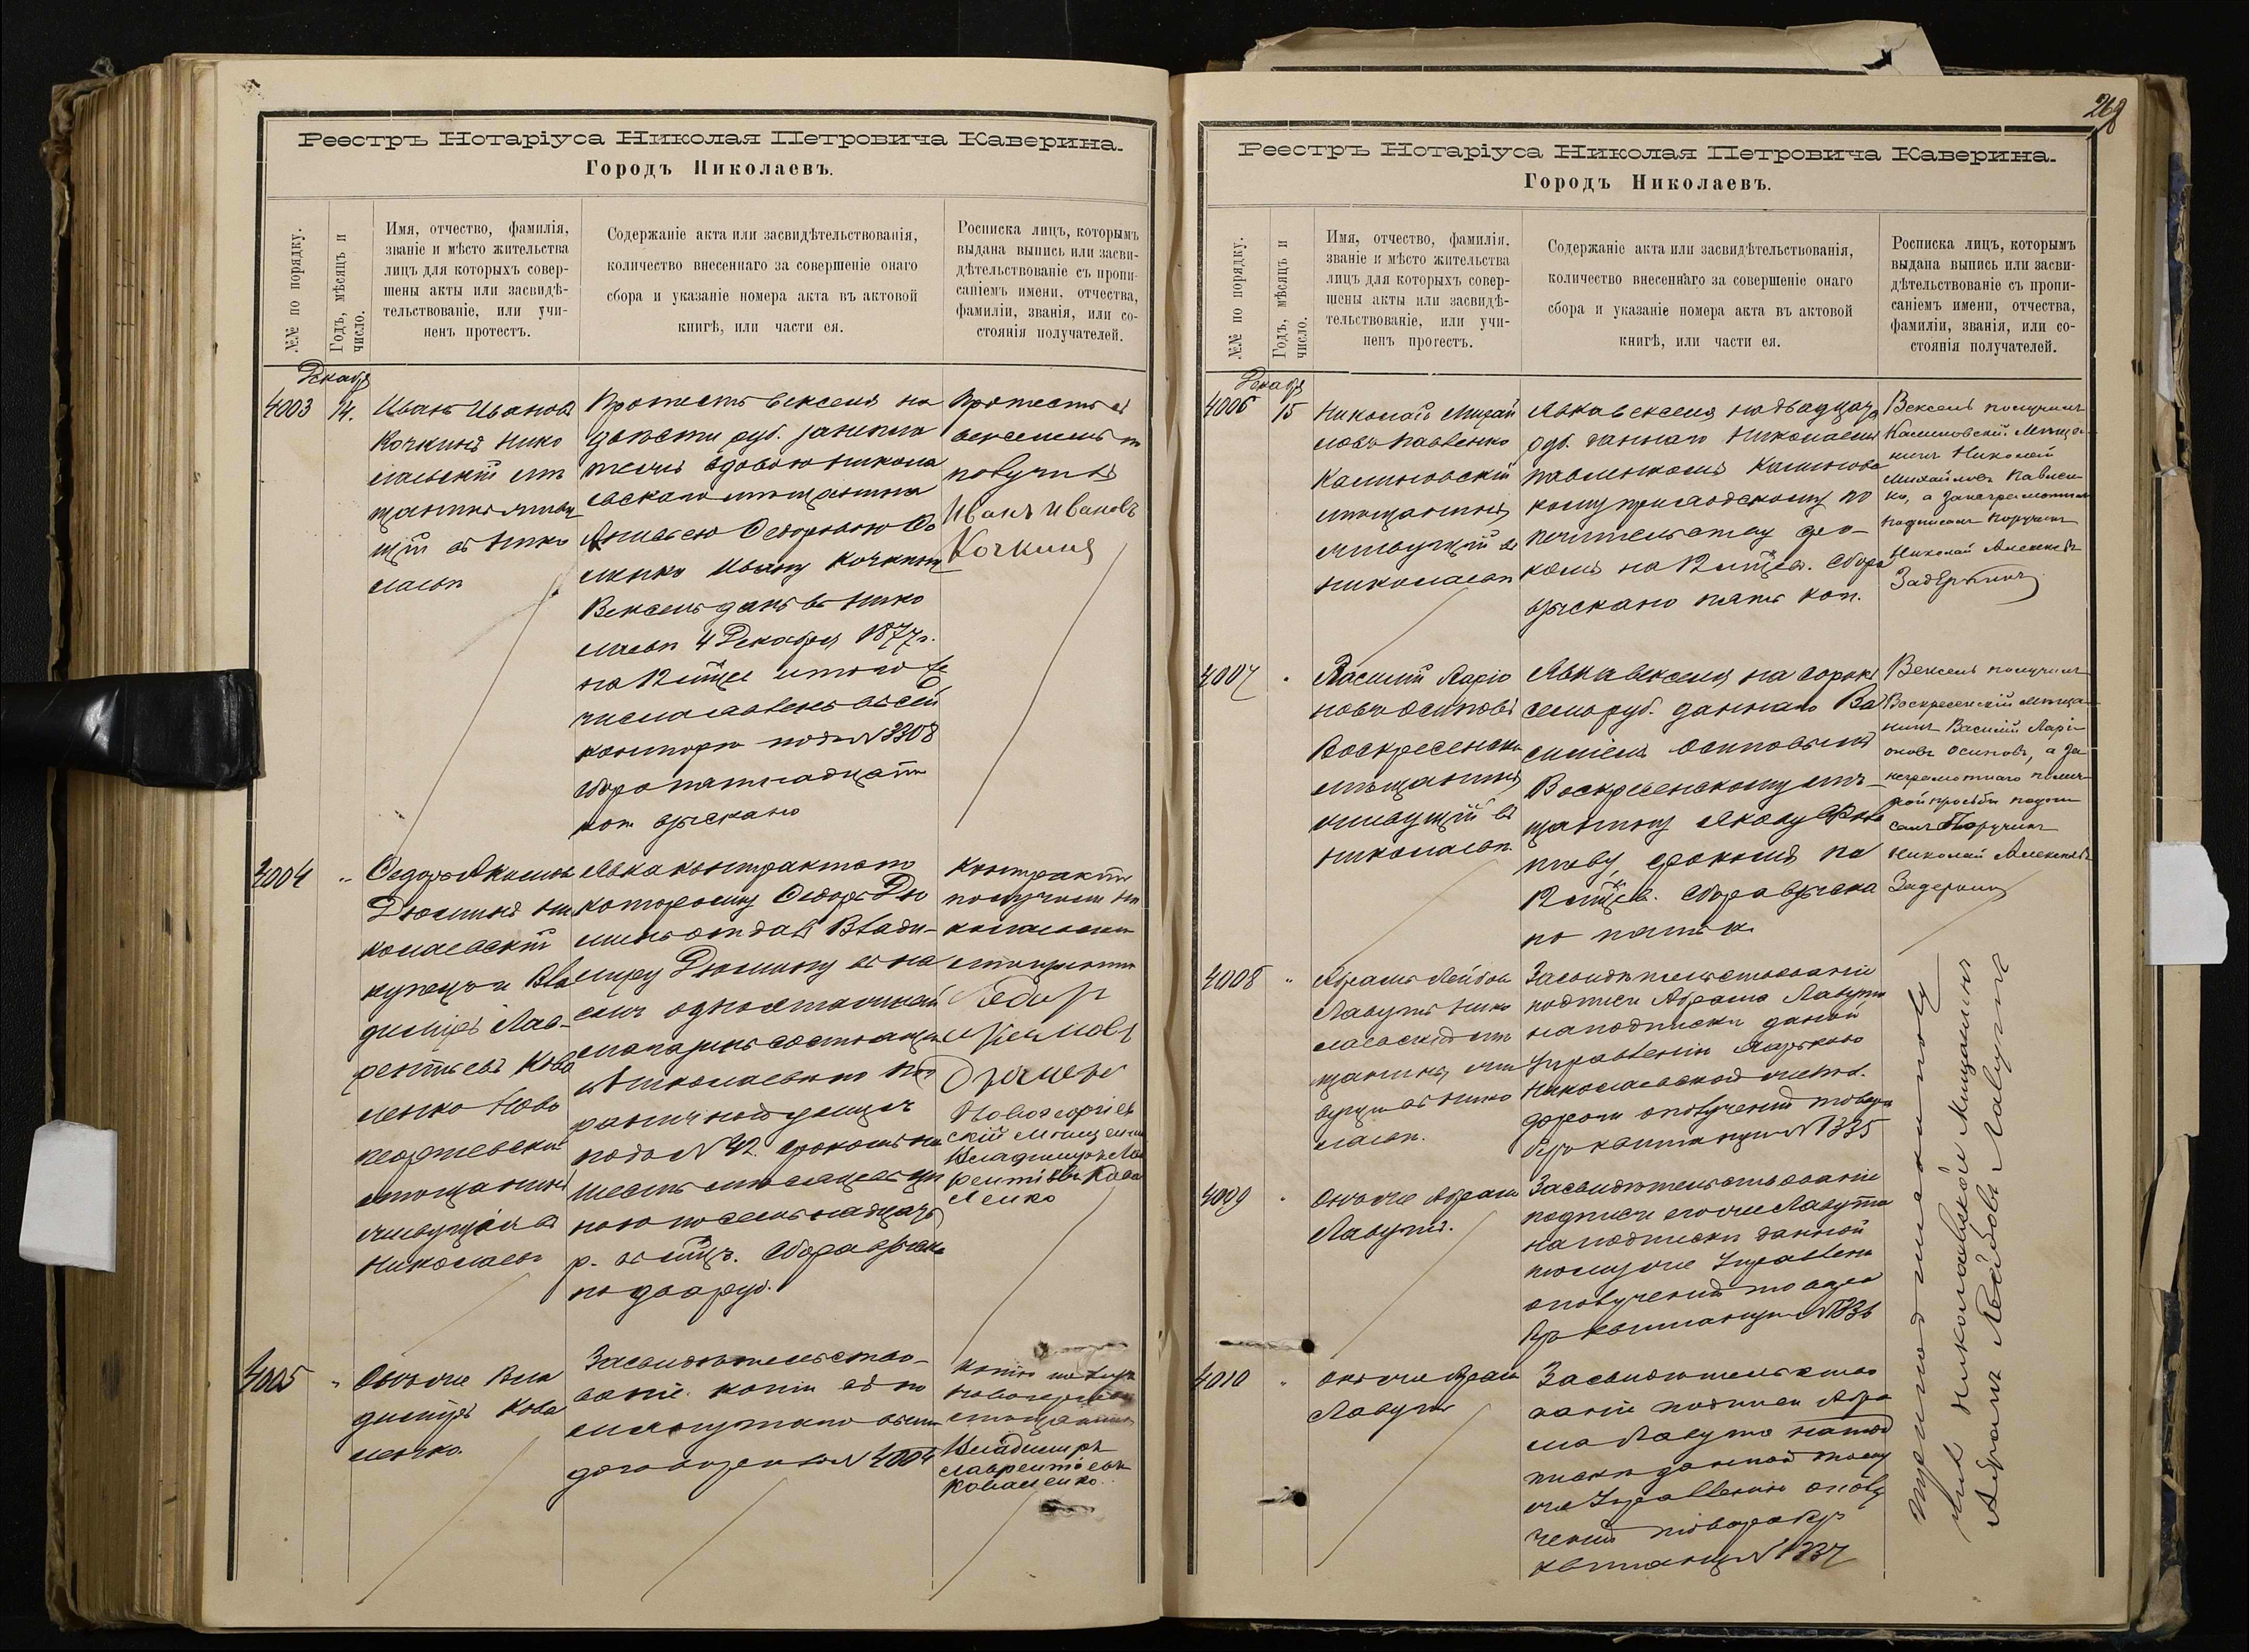 Реестръ Нотаріуса Николая Петровича Каверина.
Городъ Николаевъ.
№№ по порядку.
Годъ, мѣсяцъ и
число.
Имя, отчество, фамилія,
званіе и мѣсто жительства
лицъ для которыхъ совер-
шены акты или засвидѣ-
тельствованіе, или учи-
ненъ протестъ.
Содержаніе акта или засвидѣтельствованія,
количество внесеннаго за совершеніе онаго
сбора и указаніе номера акта въ актовой
книгѣ, или части ея.
Росписка лицъ, которымъ
выдана выпись или засви-
дѣтельствованіе съ пропи-
саніемъ имени, отчества,
фамиліи, званія, или со-
стоянія получателей.
Декабр
4003
14.
Иванъ Ивановъ
Кочкинъ Нико
лаевскій мѣ
щанинъ живу
щій въ Нико
лаевѣ
Протестъ векселя на
двѣсти руб.
вдовою Никола
евскаго мѣщанина
Ѳедоровою
Ивану Кочкину
Вексель данъ въ Нико
лаевѣ 4 Декабря 1877 г.
на 12 мѣсце
конторѣ подъ № 3308
сбора пятнадцать
коп взыскано
Протестъ съ
векселемъ
получилъ
Иванъ Ивановъ
Кочкинъ
4004
"
Ѳедоръ Акимовъ
Дюминъ Ни
колаевскій
купецъ и Вла
диміръ Лав-
рентьевъ Кова
ленко Ново
георгіевскій
мѣщанинъ
живущіе въ
Николаевѣ
Явка контракта по
которому Ѳедоръ Дю
минъ отдалъ Влади-
миру
состоящій
въ Николаевѣ по
улицѣ
подъ № 42 срокомъ на
шесть мѣсяцевъ цѣ
ною по семнадцать
р. въ мѣц. Сбора взыска
но два руб.
Контрактъ
получили Ни
колаевскій
Ѳедор
Акимовъ
Новогеоргіев
скій мѣщанин
Владимиръ Лав
рентіевъ Кова
ленко
4005
"
Онъ же Вла
диміръ Кова
ленко.
Засвидѣтельство-
ваніе копіи съ по
мянутаго выше
договора по № 4004
Копію получ
мѣщанинъ
Владимиръ
Лаврентіевъ
Коваленко.
268
Реестръ Нотаріуса Николая Петровича Каверина.
Городъ Николаевъ.
№№ по порядку.
Годъ, мѣсяцъ и
число.
Имя, отчество, фамилія,
званіе и мѣсто жительства
лицъ для которыхъ совер-
шены акты или засвидѣ-
тельствованіе, или учи-
ненъ протестъ.
Содержаніе акта или засвидѣтельствованія,
количество внесеннаго за совершеніе онаго
сбора и указаніе номера акта въ актовой
книгѣ, или части ея.
Росписка лицъ, которымъ
выдана выпись или засви-
дѣтельствованіе съ пропи-
саніемъ имени, отчества,
фамиліи, званія, или со-
стоянія получателей.
Декабря
4006
15
Николай Михай
ловъ Павленко
Калиновскій
мѣщанинъ,
живущій въ
Николаевѣ
Явка векселя на двадцать
руб. даннаго Николаемъ
Павленкомъ Калиновс
кому приходскому по
печительству сро-
комъ на 12 мѣцев. Сбора
взыскано пять коп.
Вексель получилъ
Калиновскій Мѣща
нинъ Николай
Михайловъ Павлен
ко, а за неграмотнаго
подписалъ поручикъ
Николай Алексѣевъ
Задеринъ
4007
"
Василій Ларіо
новъ Осиповъ
Воскресенскій
мѣщанинъ,
живущій въ
Николаевѣ.
Явка векселя на сорокъ
семь руб. даннаго Ва
силіемъ Осиповымъ
Воскресенскому мѣ-
щанину Якову
срокомъ на
12 мѣцев. Сбора взыска
но пять к.
Вексель получилъ
Воскресенскій мѣща
нинъ Василій Лари-
оновъ Осиповъ, а за
неграмотнаго по лич-
ной просьбѣ подпи
салъ Поручикъ
Николай Алексѣевъ
Задеринъ
4008
"
Абрамъ Лейбовъ
Лавутъ Нико
лаевскій мѣ
щанинъ, жи
вущій въ Нико
лаевѣ.
Засвидѣтельствованіе
подписи Абрама Лавута
на подпискѣ даной
Управленію Харьково
Николаевской желѣз.
дороги о полученіи товара
безъ квитанціи № 1335
4009
"
Онъ же Абрамъ
Лавутъ.
Засвидѣтельствованіе
подписи его же Лавута
на подпискѣ данной
тому же Управлен
о полученіи товара
безъ квитанціи № 1336
4010
"
Онъ же Абрам
Лавутъ
Засвидѣтельство
ваніе подписи Абра
ма Лавута на под
пискѣ данной тому
же Управленію о полу
ченіи товара безъ
квитанціи № 1337
Николаевскій Мещанинъ
Абрамъ Лейбовъ Лавутъ